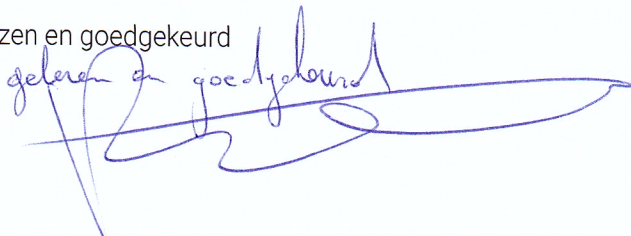 zen en goedgekeurd
gelezen en goedgekeurd